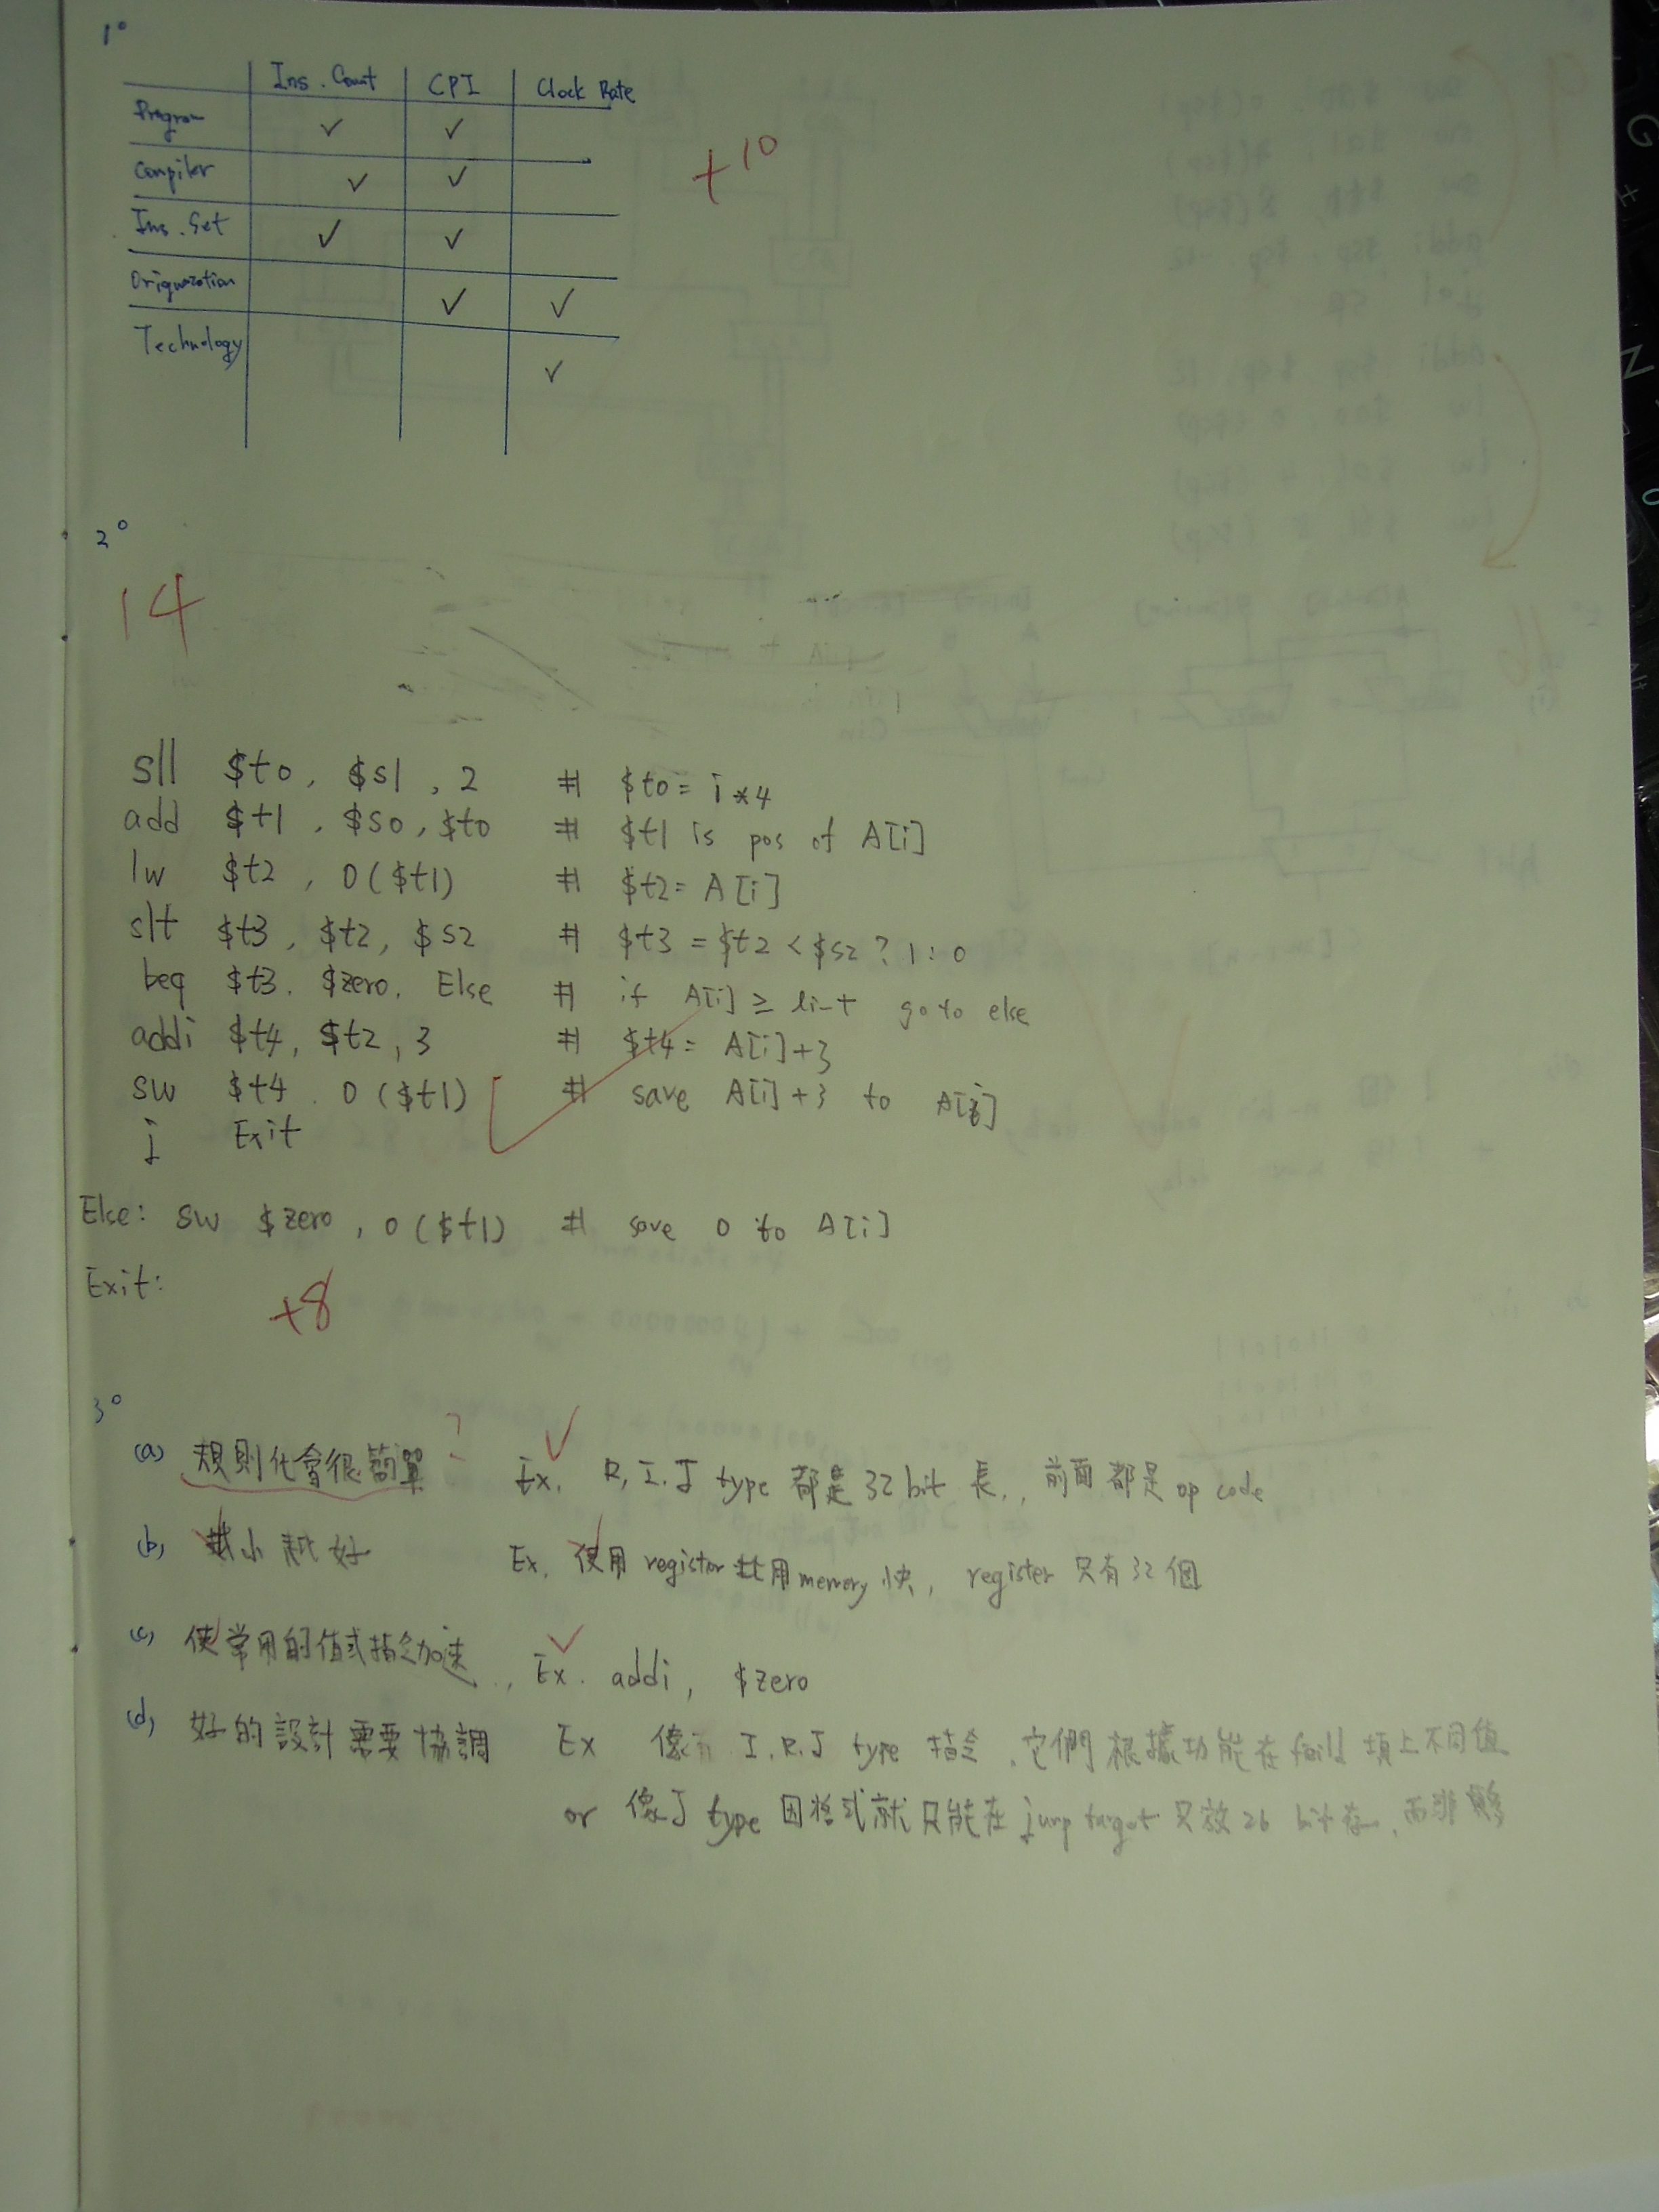 1°
Ins. Count CPI Clock Rate
Program ✓ ✓
Compiler ✓ ✓
Ins. Set ✓ ✓
✓ ✓
Technology ✓
+10
2°
14
sll $t0, $s1, 2 # $t0 = i*4
add $t1, $s0, $t0 # $t1 is pos of A[i]
lw $t2, 0($t1) # $t2 = A[i]
slt $t3, $t2, $s2 # $t3 = $t2 < $s2 ? 1 : 0
beq $t3. $zero. Else # if A[i] ≥ go to else
addi $t4, $t2, 3 # $t4 = A[i]+3
sw $t4. 0($t1) # save A[i]+3 to A[i]
j Exit
Else: sw $zero, 0($t1) # save 0 to A[i]
Exit:
+8
3°
(a) 規則化會很簡單 ? Ex. R, I. J type 都是 32 bit 長., 前面都是 op code
(b) 小 好 Ex. 使用 register 比用 memory 快, register 只有 32 個
(c) 使常用的值或指令加速., Ex. addi, $zero
(d) 好的設計需要協調 Ex 像 I.R.J type 指令.它們根據功能在 feild 填上不同值
or 像 J type 因格式就只能在 jump target 只放 26 bit 而非